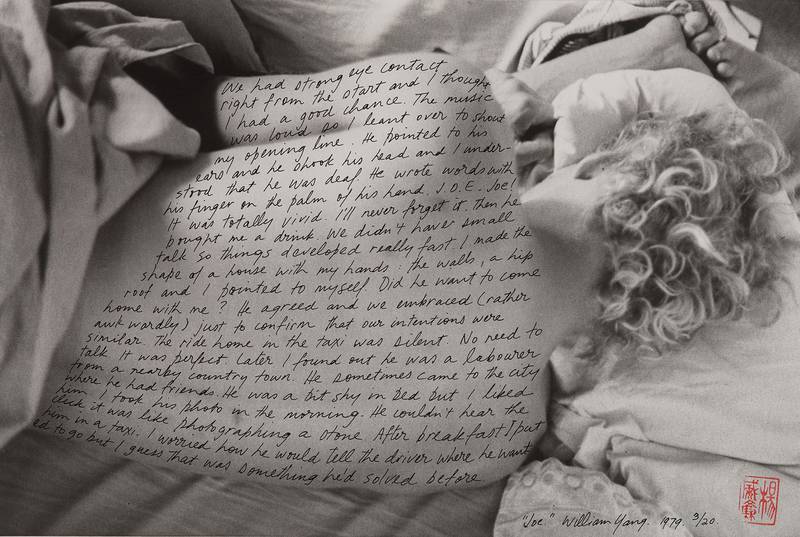 We had strong eye contact
right from the start and I thought
I had a good chance. The music
was loud so I leant over to shout
my opening line. He pointed to his
ears and he shook his head and I under-
stood that he was deaf. He wrote words with
his finger on the palm of his hand. J.O.E. Joe!
It was totally vivid. I'll never forget it. then he
bought me a drink. We didn't have small
talk so things developed really fast. I made the
shape of a house with my hands: the walls, a hip
roof and I pointed to myself. Did he want to come
home with me? He agreed and we embraced (rather
awkwardly) just to confirm that our intentions were
similar. The ride home in the taxi was silent. No need to
talk. It was perfect. Later I found out he was a labourer
from a nearby country town. He sometimes came to the city
where he had friends. He was a bit shy in bed but I liked
him. I took his photo in the morning. He couldn't hear the
click it was like photographing a stone. After breakfast I put
him in a taxi. I worried how he would tell the driver where he want
ed to go but I guess that was something he'd solved before
"Joe" William Yang. 1979. 3/20.
楊威廉